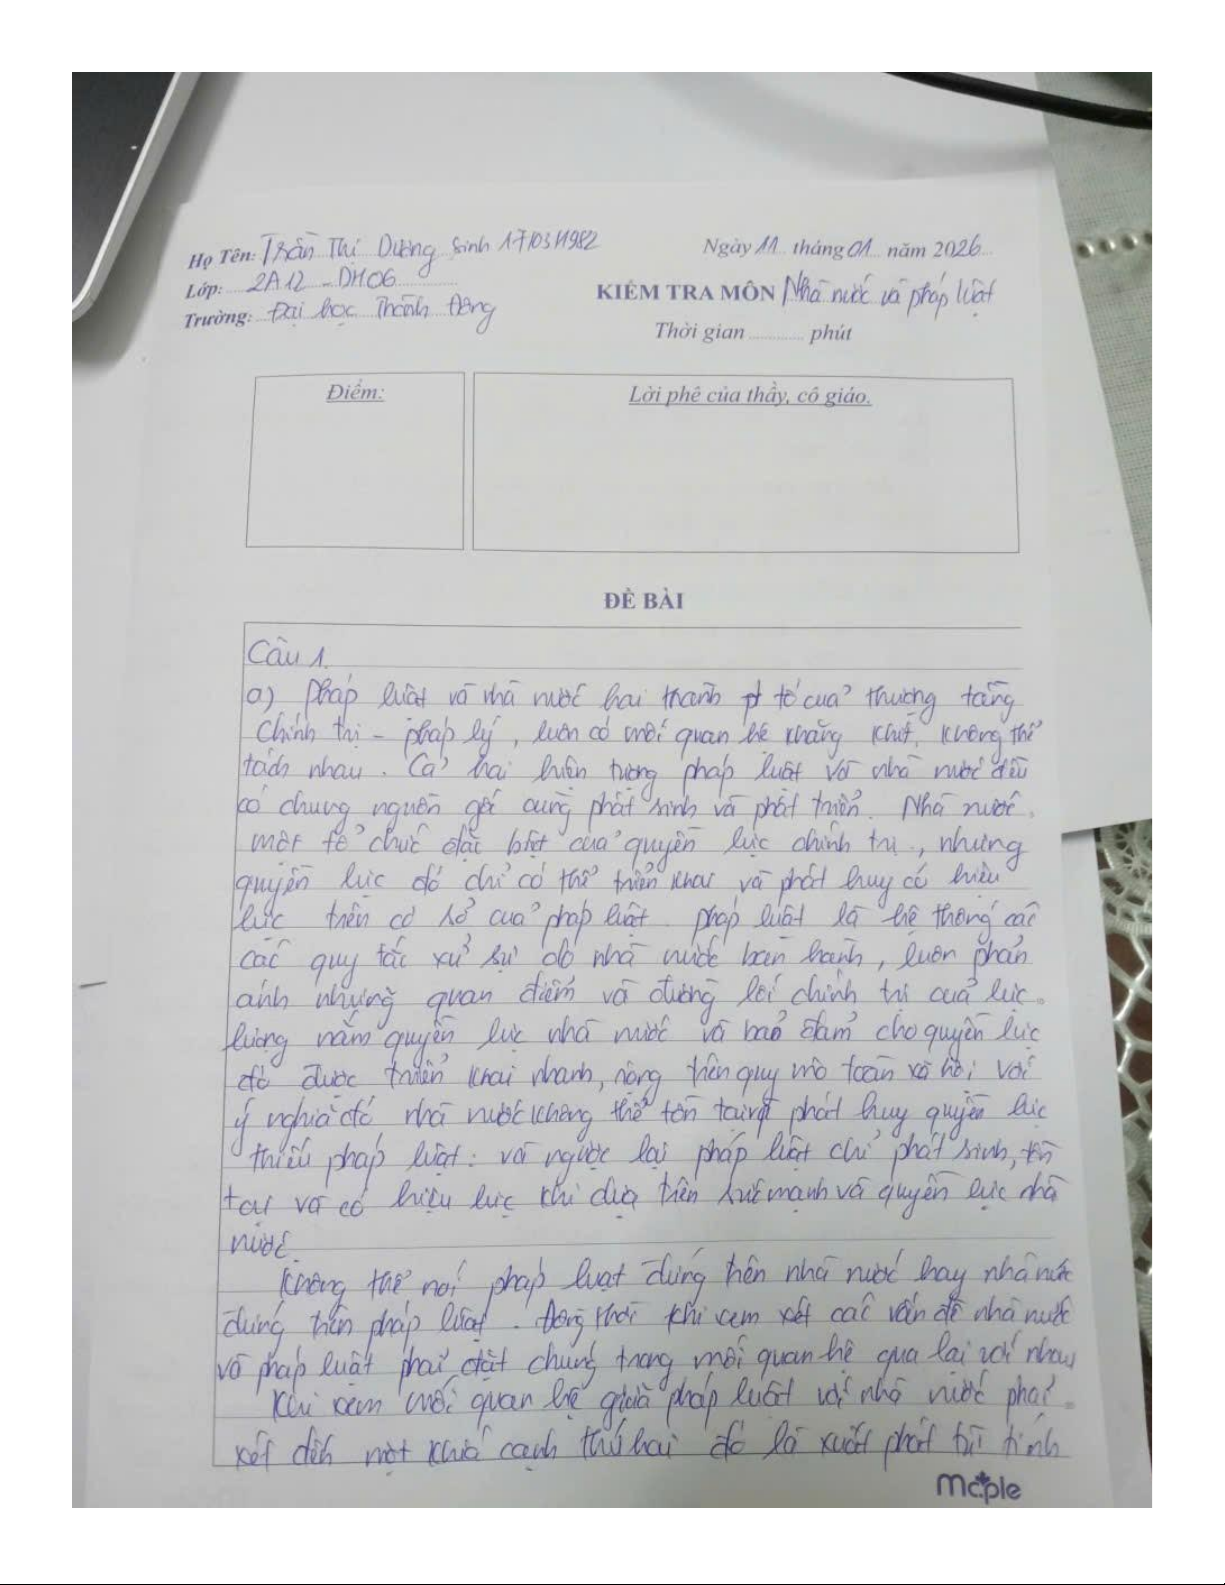 Họ Tên: Trần Thị Dương sinh 17/03/1982
Ngày 11 tháng 01 năm 2026
Lớp: 2A12 - DH06
KIỂM TRA MÔN Nhà nước và pháp luật
Trường: Đại học Thành Đông
Thời gian ............ phút
Điểm:
Lời phê của thầy, cô giáo.
ĐỀ BÀI
Câu 1.
a) Pháp luật và nhà nước hai thành tố của thượng tầng
Chính trị - pháp lý, luôn có mối quan hệ khăng khít, không thể
tách nhau. Cả hai hiện tượng pháp luật và nhà nước đều
có chung nguồn gốc cùng phát sinh và phát triển. Nhà nước
một tổ chức đặc biệt của quyền lực chính trị, nhưng
quyền lực đó chỉ có thể triển khai và phát huy có hiệu
lực trên cơ sở của pháp luật. pháp luật là hệ thống các
các quy tắc xử sự do nhà nước ban hành, luôn phản
ánh những quan điểm và đường lối chính trị của lực
lượng nắm quyền lực nhà nước và bảo đảm cho quyền lực
đó được triển khai nhanh, rộng trên quy mô toàn xã hội với
ý nghĩa đó nhà nước không thể tồn tại và phát huy quyền lực
thiếu pháp luật: và ngược lại pháp luật chỉ phát sinh, tồn
tại và có hiệu lực khi dựa trên sức mạnh và quyền lực nhà
nước.
Không thể nói pháp luật đứng trên nhà nước hay nhà nước
đứng trên pháp luật. Đồng thời khi xem xét các vấn đề nhà nước
và pháp luật phải đặt chúng trong mối quan hệ qua lại với nhau
Khi xem mối quan hệ giữa pháp luật với nhà nước phải
xét đến một khía cạnh thứ hai đó là xuất phát từ tính
maple